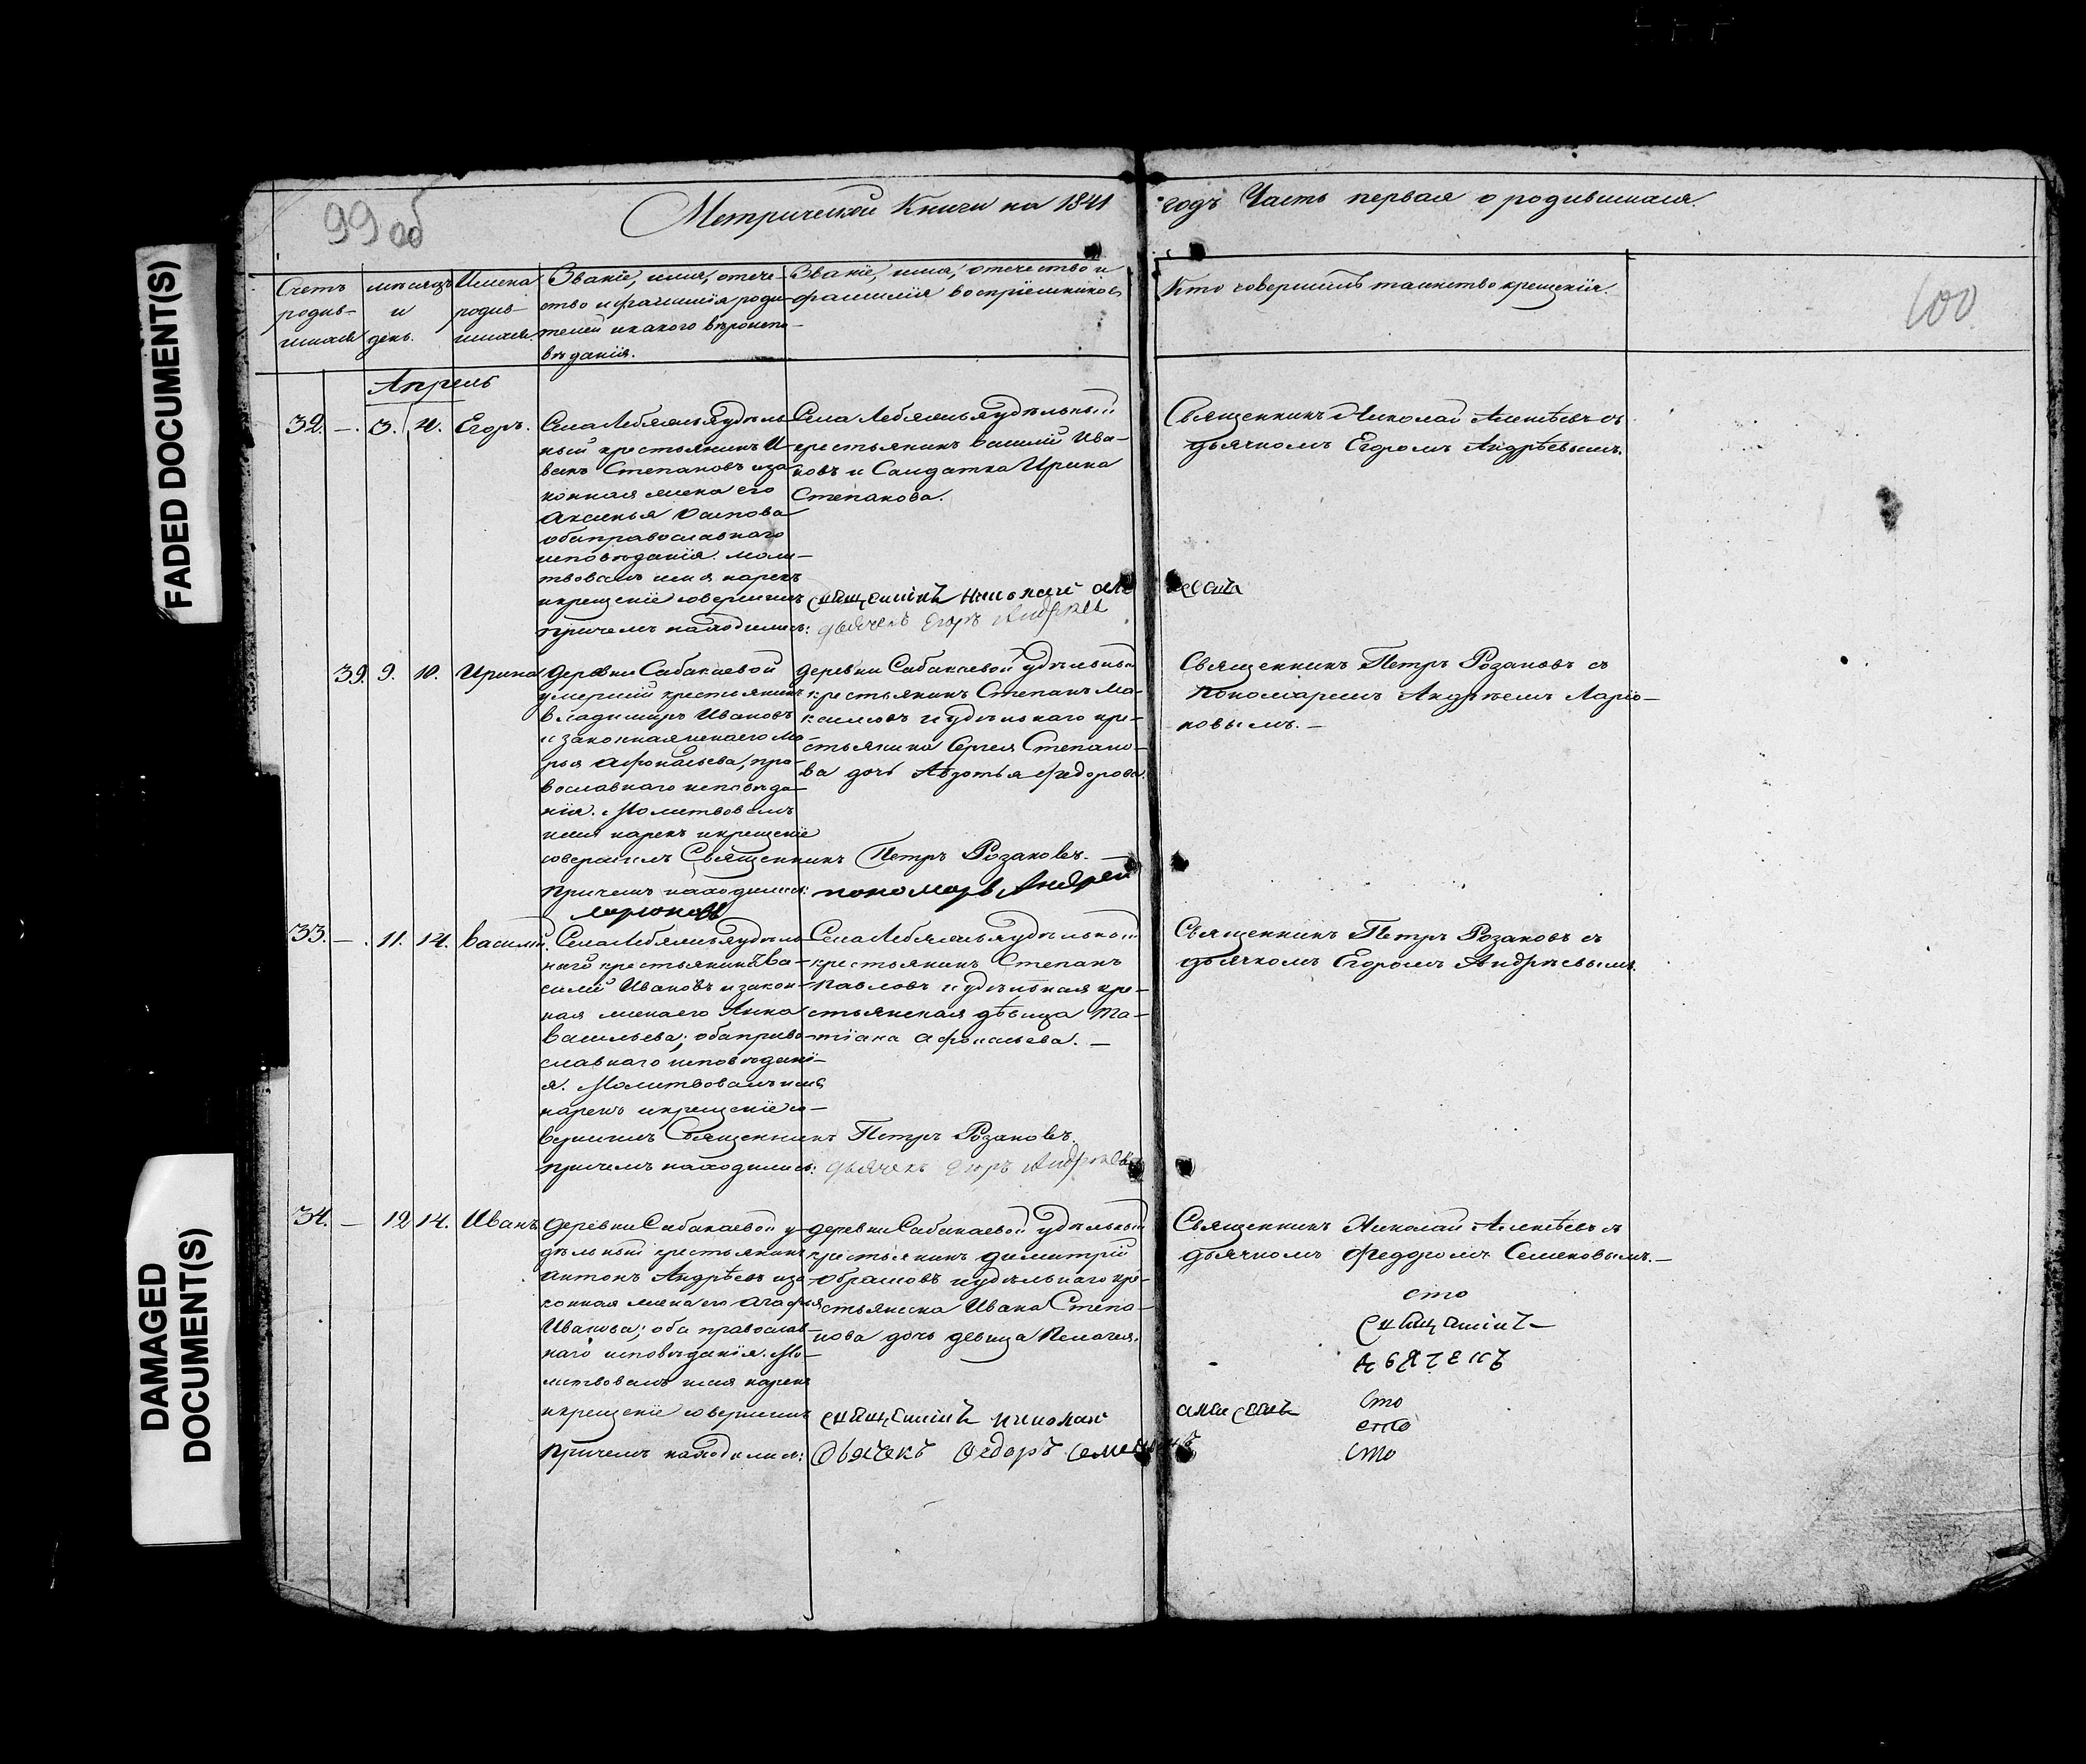 99 об
Метрической Книги на 1841 годъ Часть первая о родившихся.
100
FADED DOCUMENT(S)
DAMAGED DOCUMENT(S)
Счетъ
родив-
шихся
мѣсяцъ
и
день.
Имена
родив-
шихся.
Званіе, имя, отече-
ство и фамилія роди-
телей и какого вѣроиспо-
вѣданія.
Званіе, имя, отечество и
фамилія воспріемниковъ
Кто совершилъ таинство крещенія.
Апрель
32. — 3. 4. Егоръ.
Села Лебяжья удѣль
ный крестьянинъ И-
ванъ Степановъ и за
конная жена его
Аксинья Осипова
оба православнаго
исповѣданія. моли-
твовалъ имя нарекъ
и крещеніе совершилъ
священникъ николай але
ксеевъ
Причемъ находились: дьячекъ Егоръ Андреев
Села Лебяжья удѣльный
крестьянинъ Василій Ива-
новъ и Салдатка Ирина
Степанова.
Священникъ Николай Алексѣевъ съ
дьячкомъ Егоромъ Андрѣевымъ.
39. 9. 10. Ирина
Деревни Сабакаевой
умершій крестьянинъ
Владимиръ Ивановъ
и законная жена его Ма-
рья Афонасьева, пра-
вославнаго исповѣда-
нія. Молитвовалъ
имя нарекъ и крещеніе
совершилъ Священникъ Петръ Розановъ. —
Причемъ находились: пономарь Андрей
Ларионовъ
Деревни Сабакаевой удѣльный
крестьянинъ Степанъ Ма-
ксимовъ и удѣльнаго кре-
стьянина Сергея Степано-
ва дочь Авдотья Федорова.
Священникъ Петръ Розановъ съ
пономаремъ Андрѣемъ Ларіо-
новымъ. —
33. — 11. 14. Василій.
Села Лебяжья удѣль-
наго крестьянинъ Ва-
силій Ивановъ и закон-
ная жена его Анна
Васильева; оба право-
славнаго исповѣдані-
я. Молитвовалъ имя
нарекъ и крещеніе со-
вершилъ Священникъ Петръ Розановъ.
Причемъ находились: дьячекъ Егоръ Андреевъ
Села Лебяжья удѣльный
крестьянинъ Степанъ
Павловъ и удѣльная кре-
стьянская дѣвица Та-
тіана Афонасьева. —
Священникъ Петръ Розановъ съ
дьячкомъ Егоромъ Андрѣевымъ.
34. — 12 14. Иванъ
Деревни Сабакаевой у-
дѣльный крестьянинъ
Антонъ Андрѣевъ и за
конная жена его Агафия
Иванова; оба православ-
наго исповѣданія. Мо-
литвовалъ имя нарекъ
и крещеніе совершилъ священникъ николай
алексеевъ
Причемъ находились: Дьячекъ Федоръ Семеновъ
Деревни Сабакаевой удѣльный
крестьянинъ Димитрій
Абрамовъ и удѣльнаго кре-
стьянина Ивана Степа-
нова дочь девица Пелагея.
Священникъ Николай Алексѣевъ съ
дьячкомъ Феодромъ Семеновымъ. —
сто
священникъ
дьячекъ
сто
сто
сто